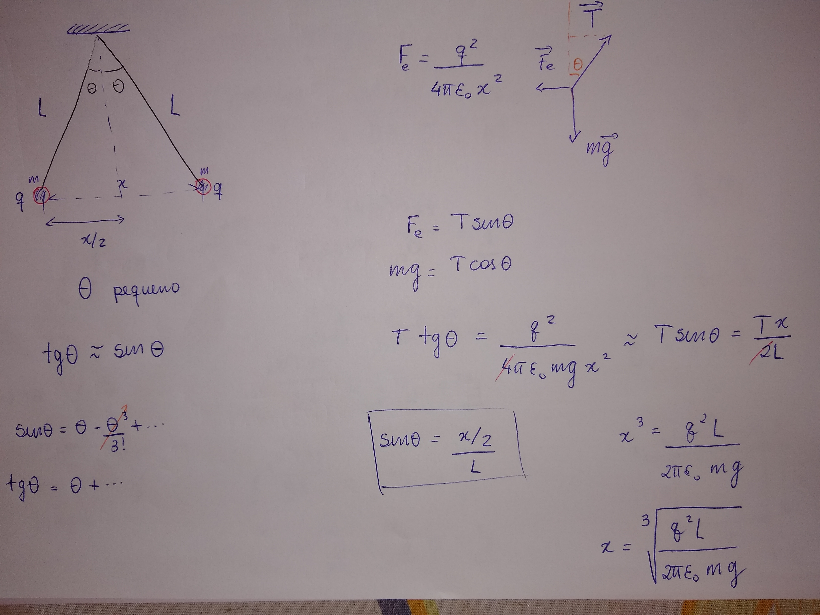 θ θ
L L
m m
q x q
x/2
θ pequeno
tgθ ≈ sinθ
sinθ = θ - θ³/3! + ...
tgθ = θ + ...
Fe = q²/4πε₀x²
T
Fe θ
mg
Fe = T sinθ
mg = T cosθ
T tgθ = q²/4πε₀mgx² ≈ T sinθ = Tx/2L
sinθ = x/2/L
x³ = q²L/2πε₀mg
x = ∛(q²L/2πε₀mg)